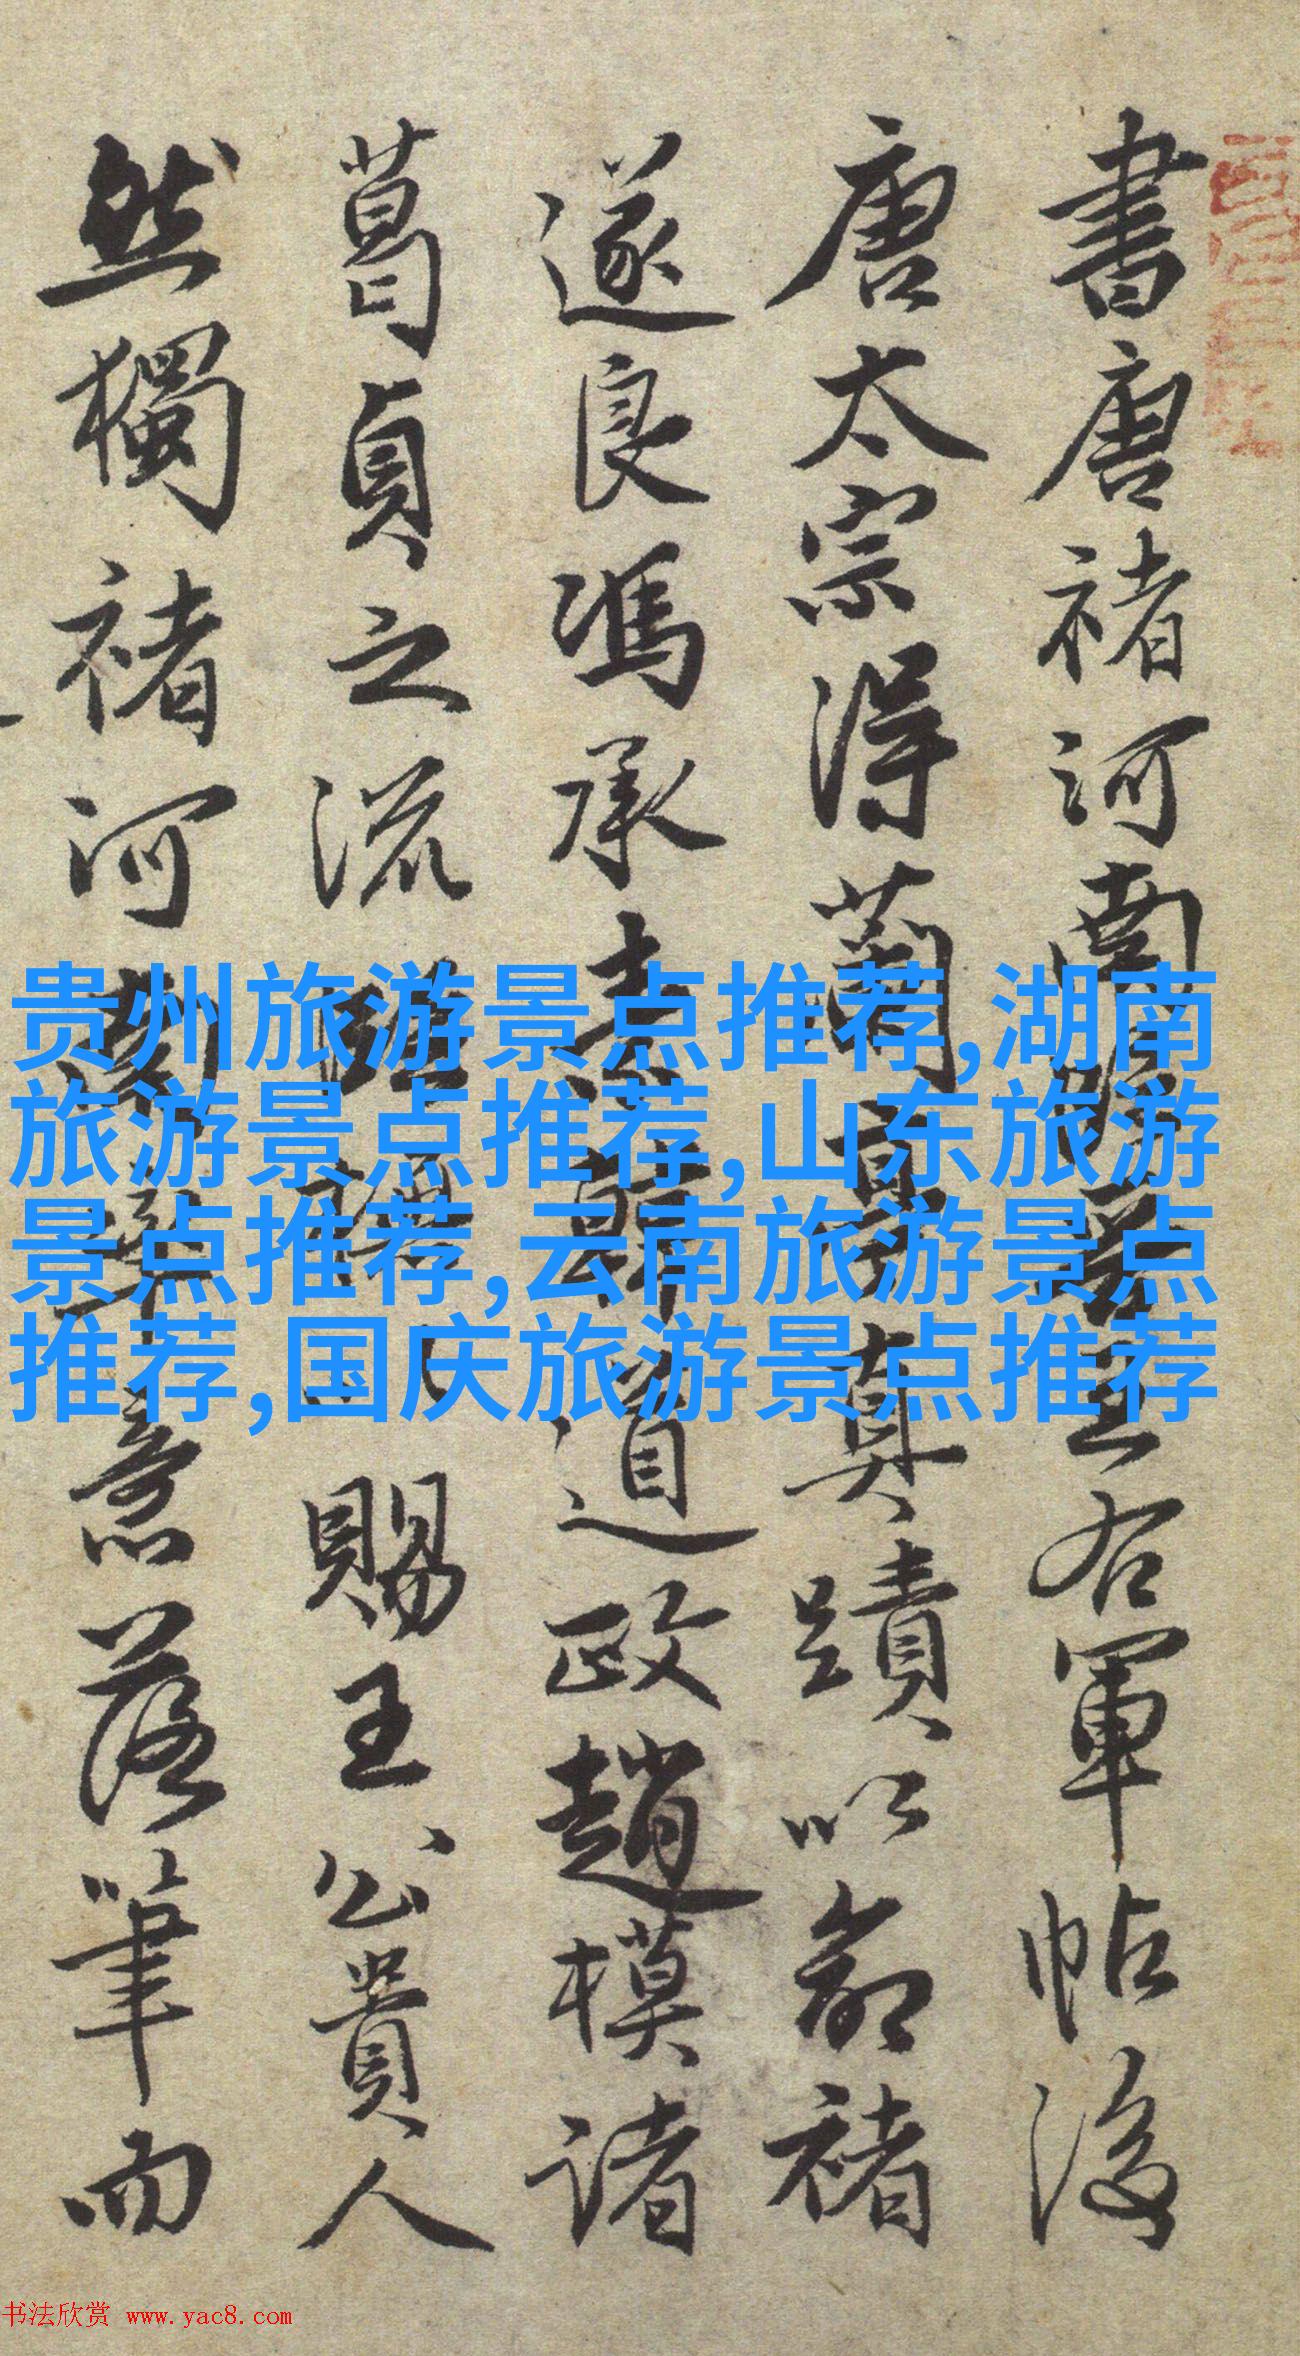 書唐褚河南臨晉王右軍帖後
唐太宗得蘭亭真蹟以命褚
遂良馮承素韓道政趙模諸
葛貞之流賜王公貴人
然獨褚河南率意落筆而
贵州旅游景点推荐,湖南
旅游景点推荐,山东旅游
景点推荐,云南旅游景点
推荐,国庆旅游景点推荐
书法欣赏 www.yac8.com